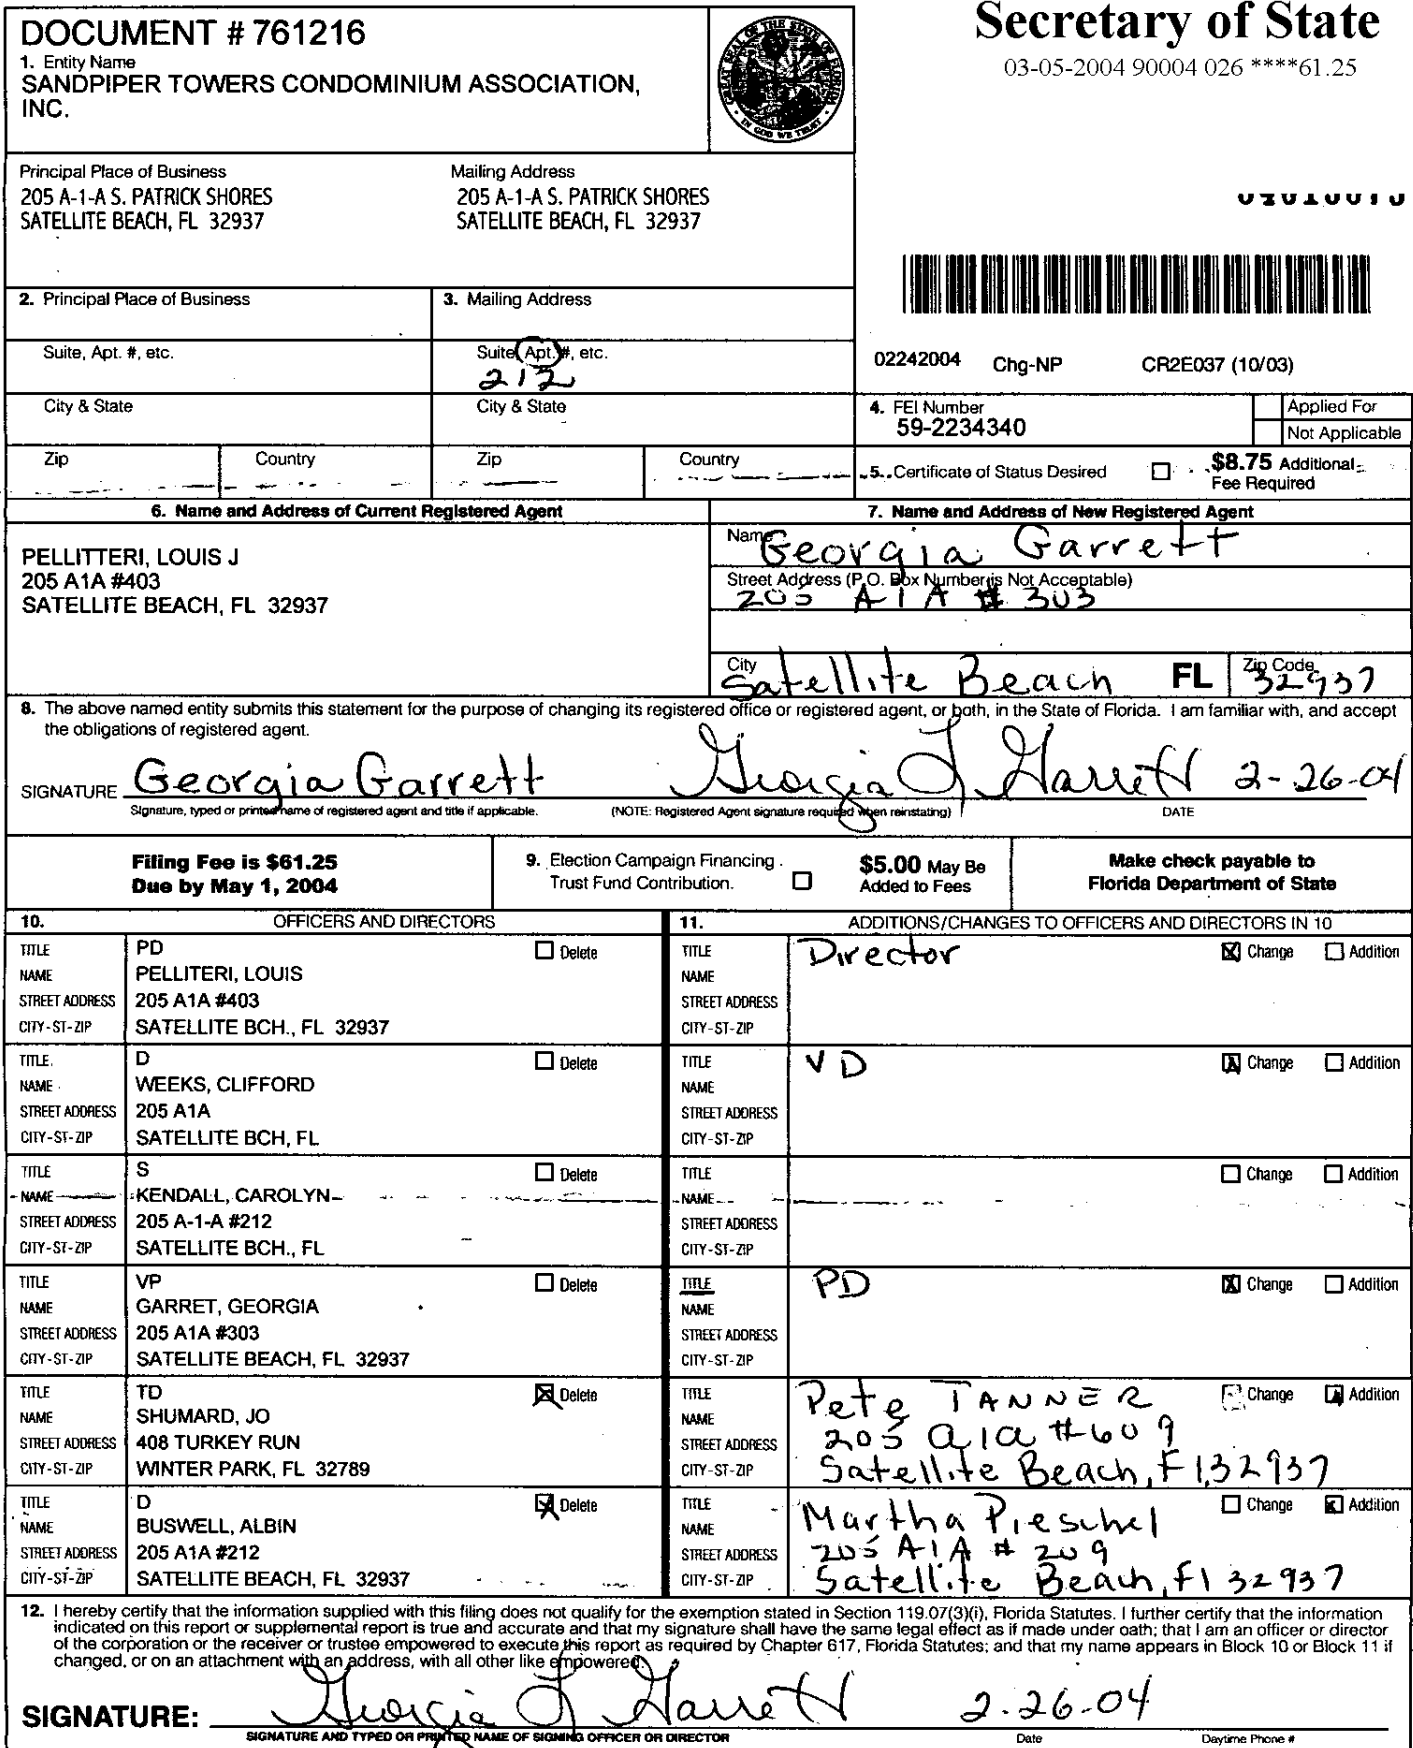 DOCUMENT # 761216
1. Entity Name
SANDPIPER TOWERS CONDOMINIUM ASSOCIATION,
INC.
GREAT SEAL OF THE STATE OF FLORIDA
IN GOD WE TRUST
Secretary of State
03-05-2004 90004 026 ****61.25
Principal Place of Business
205 A-1-A S. PATRICK SHORES
SATELLITE BEACH, FL 32937
Mailing Address
205 A-1-A S. PATRICK SHORES
SATELLITE BEACH, FL 32937
2. Principal Place of Business
3. Mailing Address
Suite, Apt. #, etc.
Suite, Apt. #, etc.
212
City & State
City & State
Zip
Country
Zip
Country
02242004 Chg-NP CR2E037 (10/03)
4. FEI Number
59-2234340
Applied For
Not Applicable
5. Certificate of Status Desired
$8.75 Additional
Fee Required
6. Name and Address of Current Registered Agent
PELLITTERI, LOUIS J
205 A1A #403
SATELLITE BEACH, FL 32937
7. Name and Address of New Registered Agent
Name Georgia Garrett
Street Address (P.O. Box Number is Not Acceptable)
205 A1A # 303
City Satellite Beach FL Zip Code 32937
8. The above named entity submits this statement for the purpose of changing its registered office or registered agent, or both, in the State of Florida. I am familiar with, and accept
the obligations of registered agent.
SIGNATURE Georgia Garrett Georgia L Garrett 2-26-04
Signature, typed or printed name of registered agent and title if applicable. (NOTE: Registered Agent signature required when reinstating) DATE
Filing Fee is $61.25
Due by May 1, 2004
9. Election Campaign Financing
Trust Fund Contribution.
$5.00 May Be
Added to Fees
Make check payable to
Florida Department of State
10. OFFICERS AND DIRECTORS
11. ADDITIONS/CHANGES TO OFFICERS AND DIRECTORS IN 10
TITLE PD Delete
NAME PELLITERI, LOUIS
STREET ADDRESS 205 A1A #403
CITY-ST-ZIP SATELLITE BCH., FL 32937
TITLE Director Change Addition
NAME
STREET ADDRESS
CITY-ST-ZIP
TITLE D Delete
NAME WEEKS, CLIFFORD
STREET ADDRESS 205 A1A
CITY-ST-ZIP SATELLITE BCH, FL
TITLE VD Change Addition
NAME
STREET ADDRESS
CITY-ST-ZIP
TITLE S Delete
NAME KENDALL, CAROLYN
STREET ADDRESS 205 A-1-A #212
CITY-ST-ZIP SATELLITE BCH., FL
TITLE Change Addition
NAME
STREET ADDRESS
CITY-ST-ZIP
TITLE VP Delete
NAME GARRET, GEORGIA
STREET ADDRESS 205 A1A #303
CITY-ST-ZIP SATELLITE BEACH, FL 32937
TITLE PD Change Addition
NAME
STREET ADDRESS
CITY-ST-ZIP
TITLE TD Delete
NAME SHUMARD, JO
STREET ADDRESS 408 TURKEY RUN
CITY-ST-ZIP WINTER PARK, FL 32789
TITLE Change Addition
NAME Pete TANNER
STREET ADDRESS 205 a1a #609
CITY-ST-ZIP Satellite Beach, Fl 32937
TITLE D Delete
NAME BUSWELL, ALBIN
STREET ADDRESS 205 A1A #212
CITY-ST-ZIP SATELLITE BEACH, FL 32937
TITLE Change Addition
NAME Martha Pieschel
STREET ADDRESS 205 A1A # 209
CITY-ST-ZIP Satellite Beach, Fl 32937
12. I hereby certify that the information supplied with this filing does not qualify for the exemption stated in Section 119.07(3)(i), Florida Statutes. I further certify that the information
indicated on this report or supplemental report is true and accurate and that my signature shall have the same legal effect as if made under oath; that I am an officer or director
of the corporation or the receiver or trustee empowered to execute this report as required by Chapter 617, Florida Statutes; and that my name appears in Block 10 or Block 11 if
changed, or on an attachment with an address, with all other like empowered.
SIGNATURE: Georgia L Garrett 2.26-04
SIGNATURE AND TYPED OR PRINTED NAME OF SIGNING OFFICER OR DIRECTOR Date Daytime Phone #